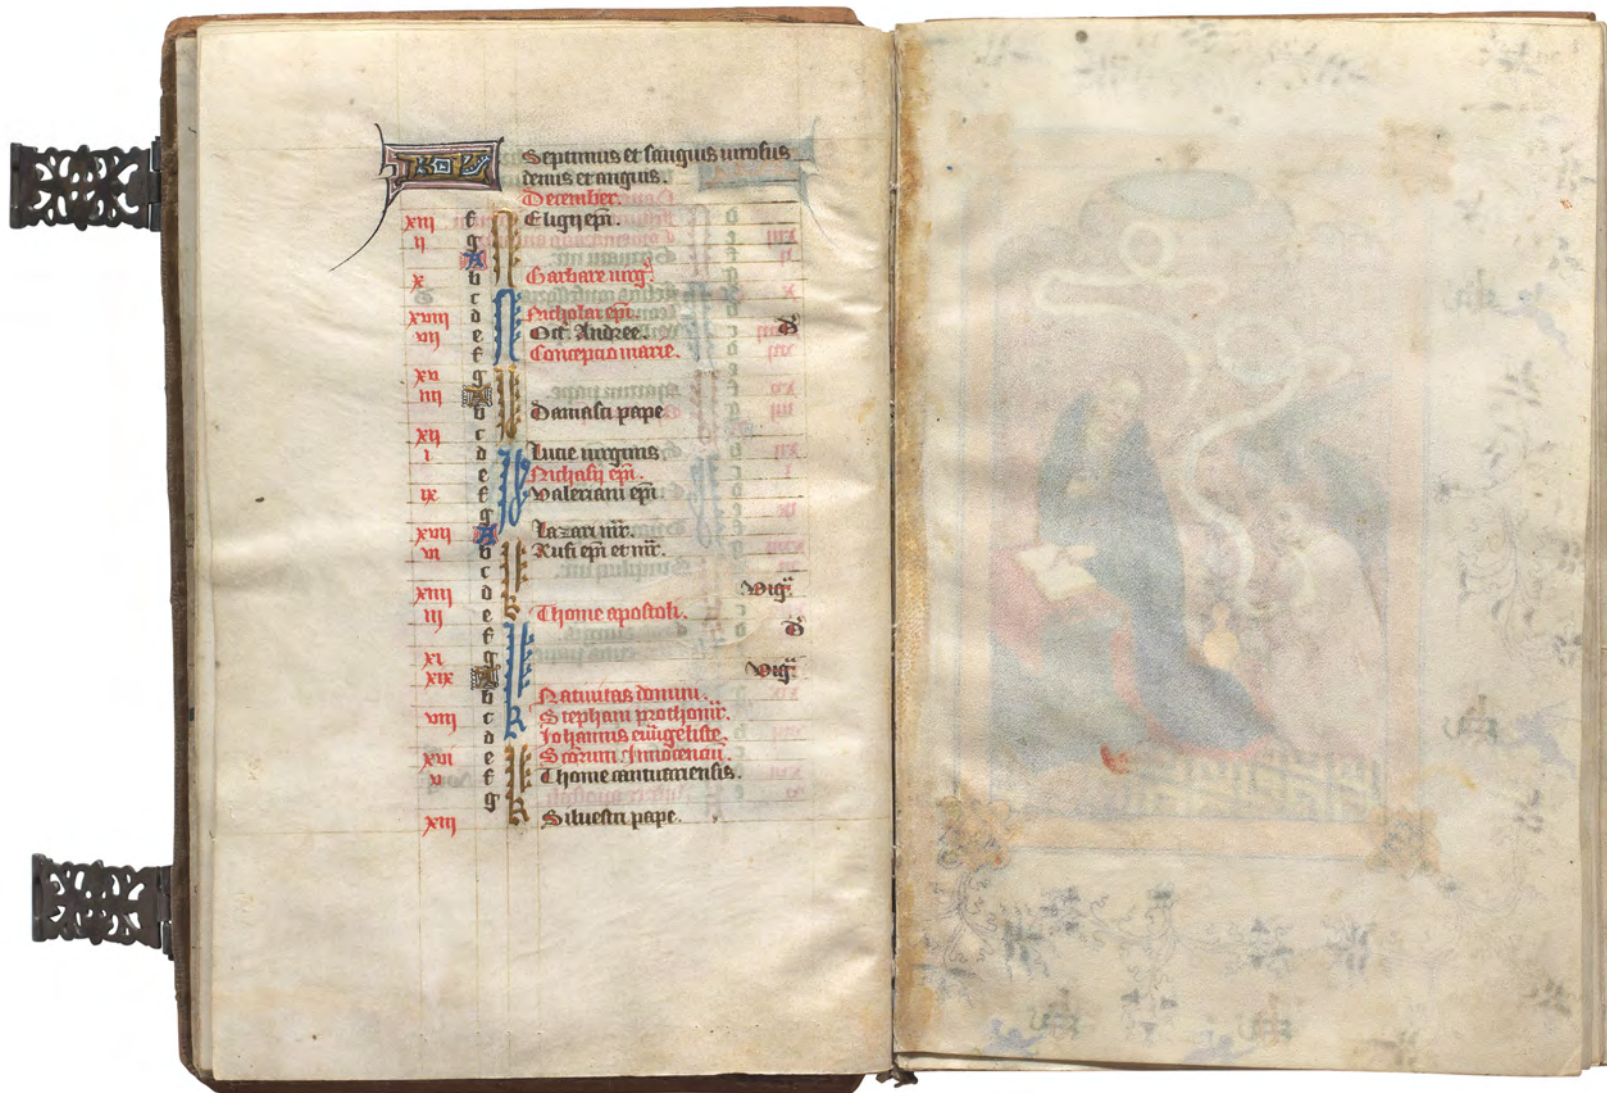 KL Septimus et sanguis virosus
denis et anguis.
December.
xiij f Eligij epi.
ij g
A
x b Barbare virg.
c
xviij d Nicholai epi.
vij e Oct Andree.
f Conceptio marie.
xv g
iiij A
b Damasci pape
xij c
i d Lucie virginis.
e Nichasij epi.
ix f Valeriani epi
g
xvij A Lazari mr.
vi b Rufi epi et mr.
c
xiiij d Vig.
iij e Thome apostoli.
f
xi g
xix A Vig.
b Natiuitas domini.
viij c Stephani prothomr.
d Iohannis ewangeliste.
xvi e Scorum Innocencium.
v f Thome cantuariensis.
g
xiij A Siluestri pape.